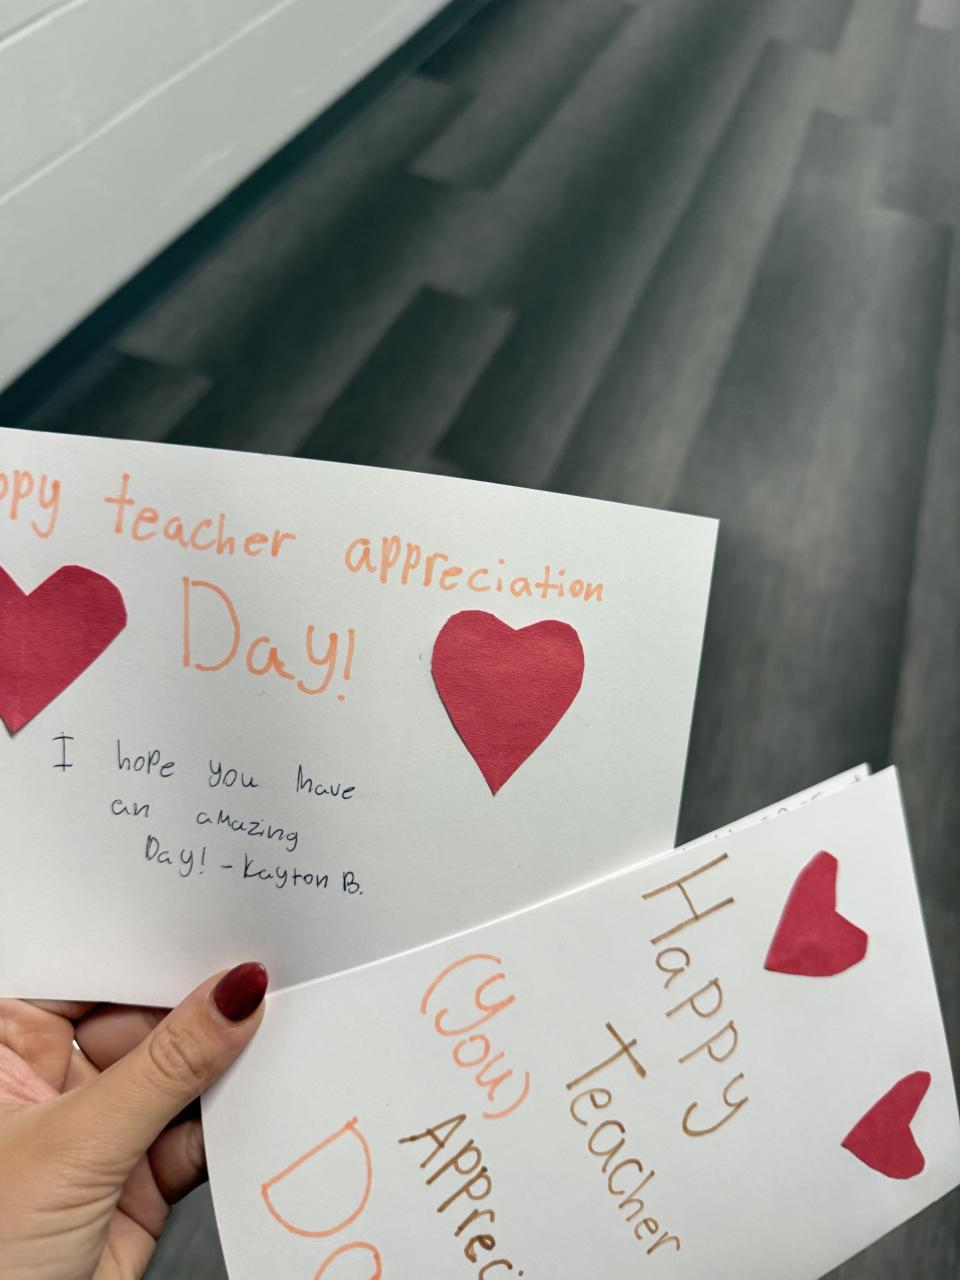 ppy teacher appreciation
Day!
I hope you have
an amazing
Day! - Kayton B.
Happy
Teacher
(you)
Appreci
Da